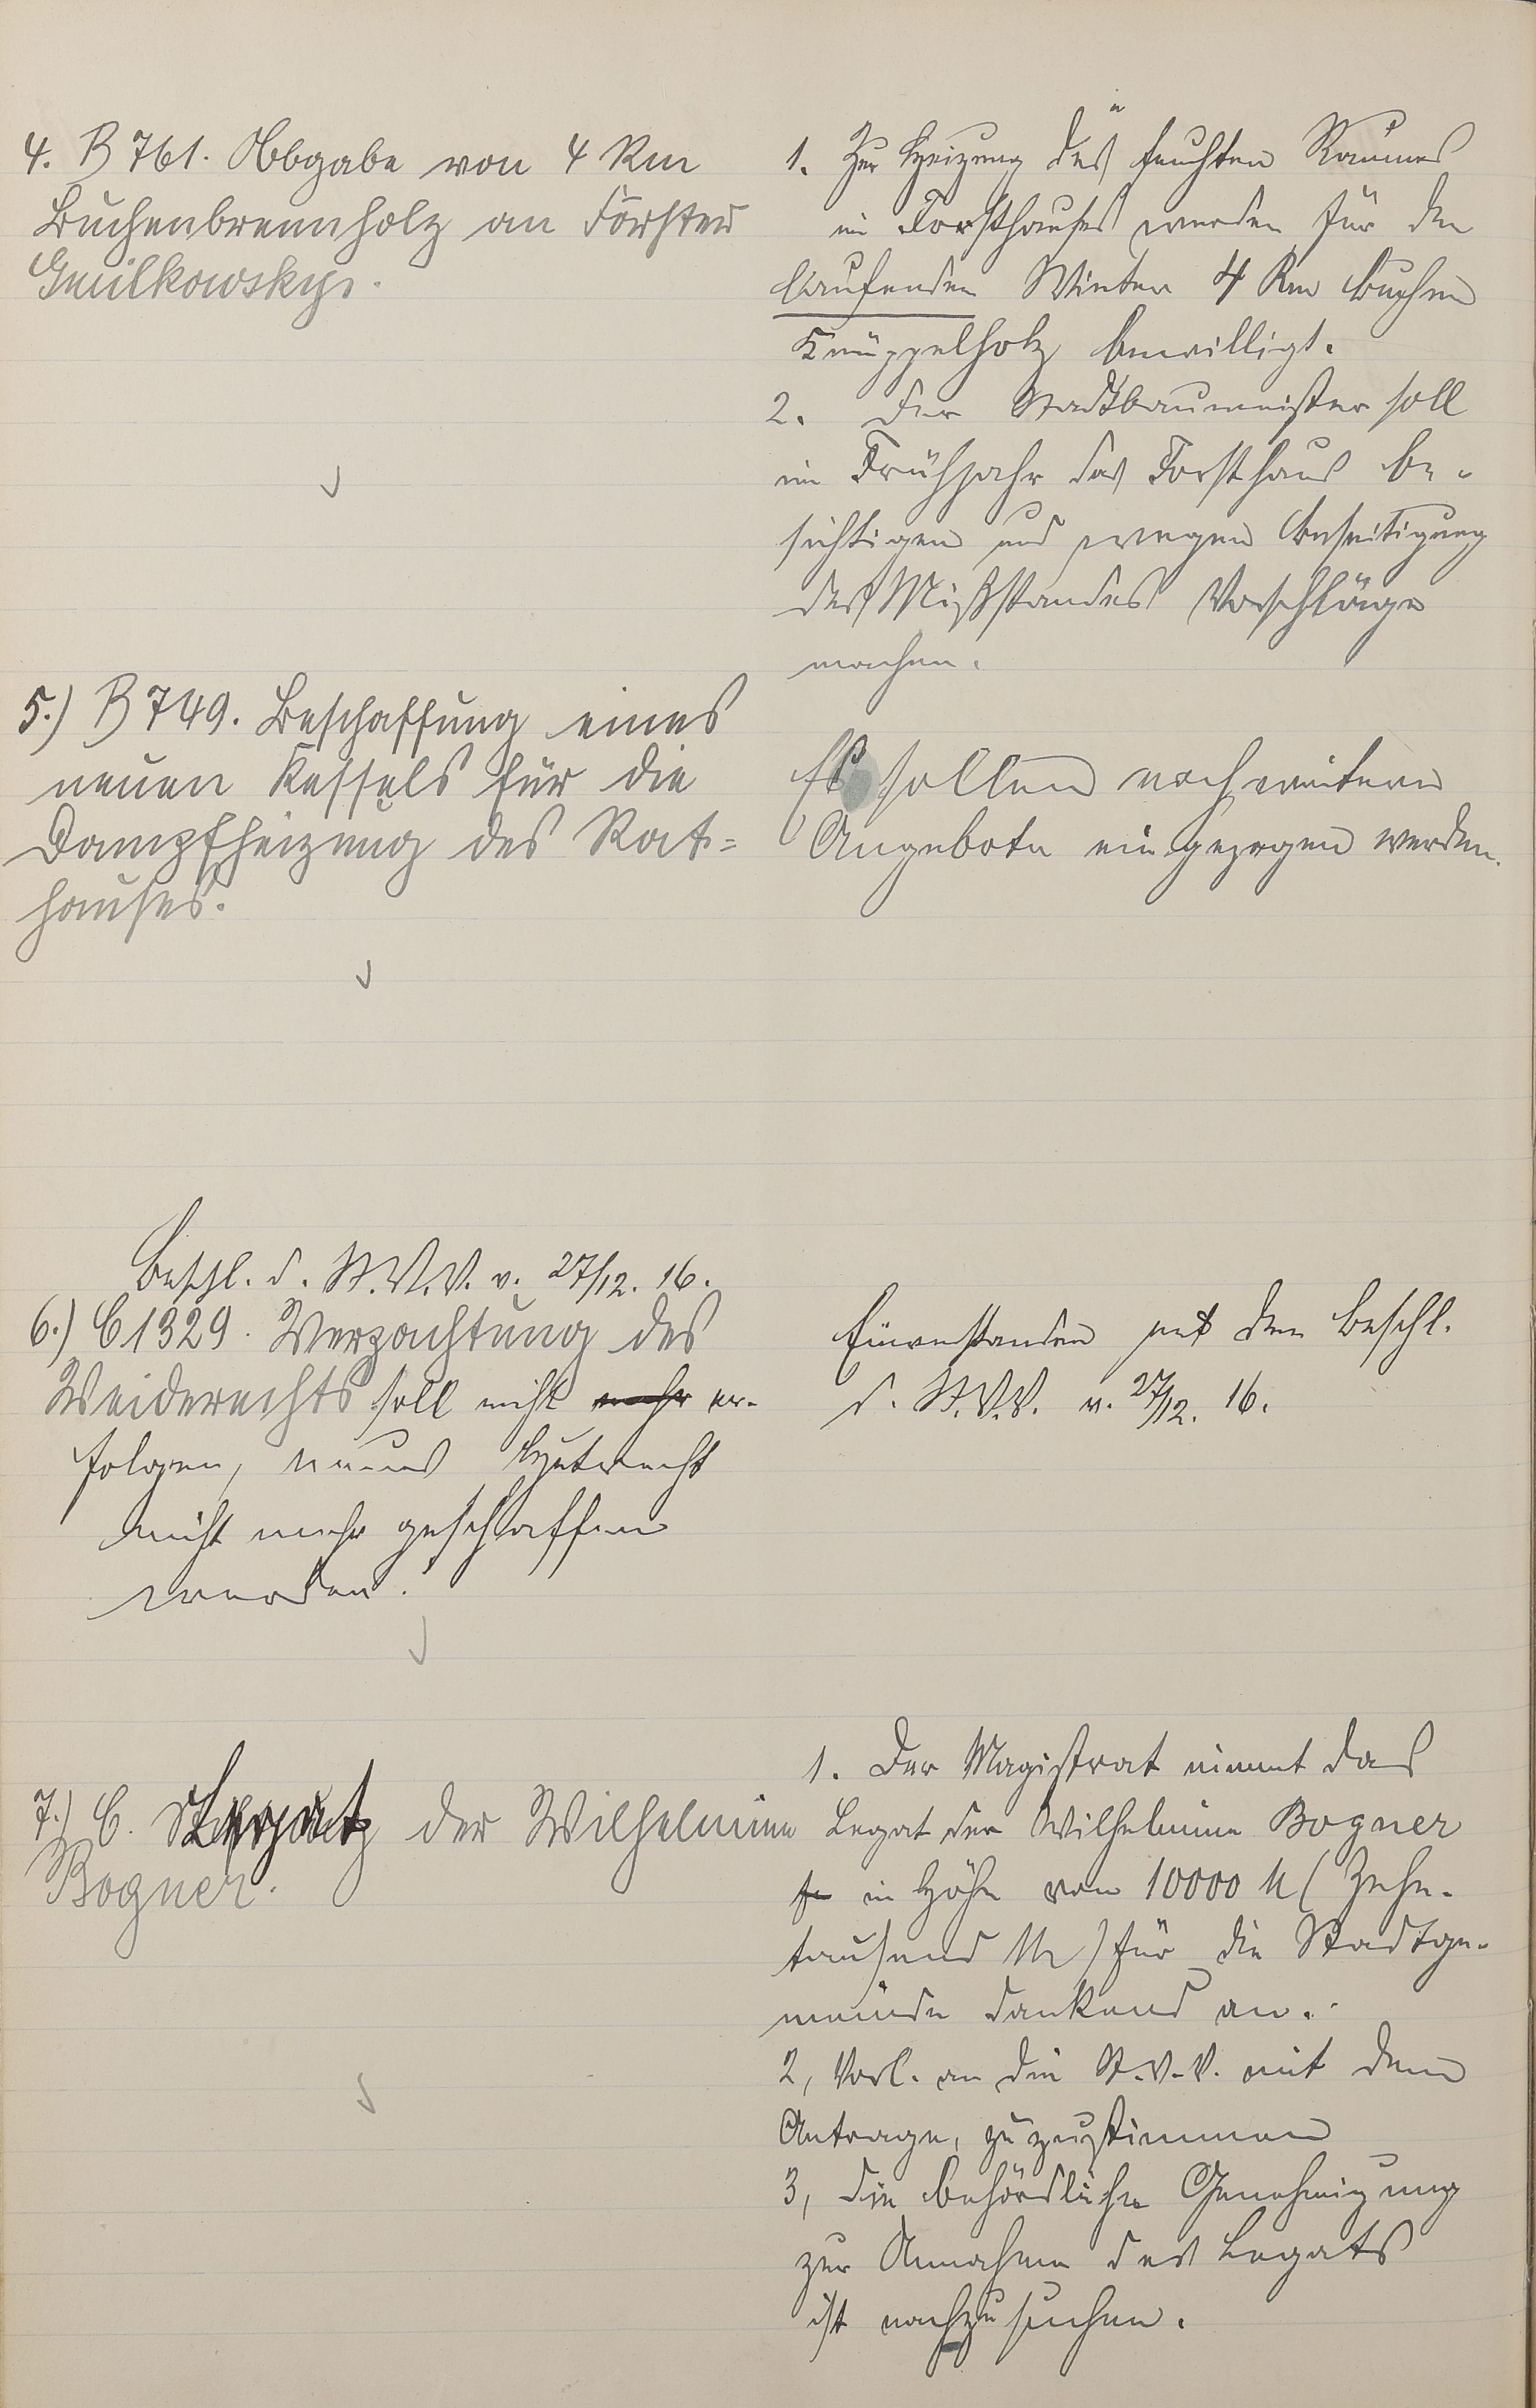 4. B 761. Abgabe von 4 Rm
Buchenbrennholz an Förster
Gmilkowsky.
1. Zur Heizung des feuchten Raumes
im Forsthauses werden für den
laufenden Winter 4 Rm buchen
Knüppelholz bewilligt.
2. Der Stadtbaumeister soll
im Frühjahr das Forsthaus be-
sichtigen und wegen Beseitigung
des Mißstandes Vorschläge
machen.
5.) B 749. Beschaffung eines
neuen Kessels für die
Dampfheizung des Rat=
hauses.
Es sollen noch weitere
Angebote eingezogen werden.
Beschl. d. St.V.V. v. 27/12. 16.
6.) C 1329. Verpachtung des
Weiderechts soll nicht mehr er-
folgen, neues Hutrecht
nicht mehr geschaffen
werden.
Einverstanden mit dem Beschl.
d. St.V.V. v. 27/12. 16.
7.) C. Legat der Wilhelmine
Bogner.
1. Der Magistrat nimmt das
Legat der Wilhelmine Bogner
in Höhe von 10000 M (Zehn-
tausend M) für die Stadtge-
meinde dankend an.
2, Vorl. an die St.V.V. mit dem
Antrage, zuzustimmen
3, die behördliche Genehmigung
zur Annahme des Legats
ist nachzusuchen.